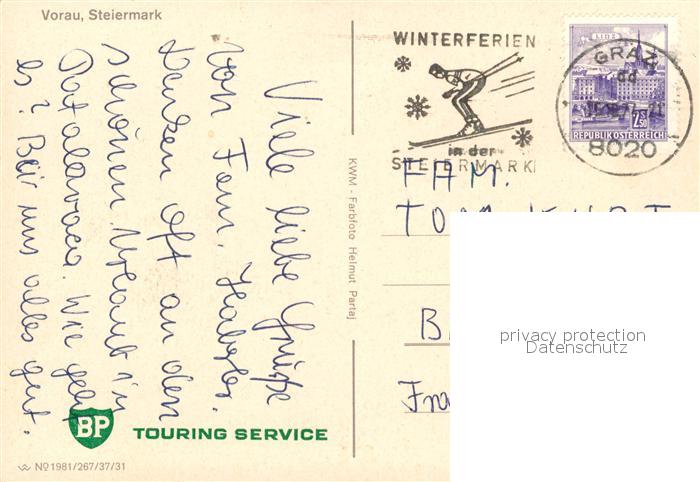 Vorau, Steiermark
Viele liebe Grüße
von Fam. Haberler.
Denken oft an den
schönen Urlaub in
Es? Bei uns alles gut.
BP
TOURING SERVICE
№ 1981/267/37/31
KWM - Farbfoto Helmut Partaj
WINTERFERIEN
in der
STEIERMARK
LINZ
2.50
REPUBLIK ÖSTERREICH
GRAZ
8020
FAM.
privacy protection
Datenschutz